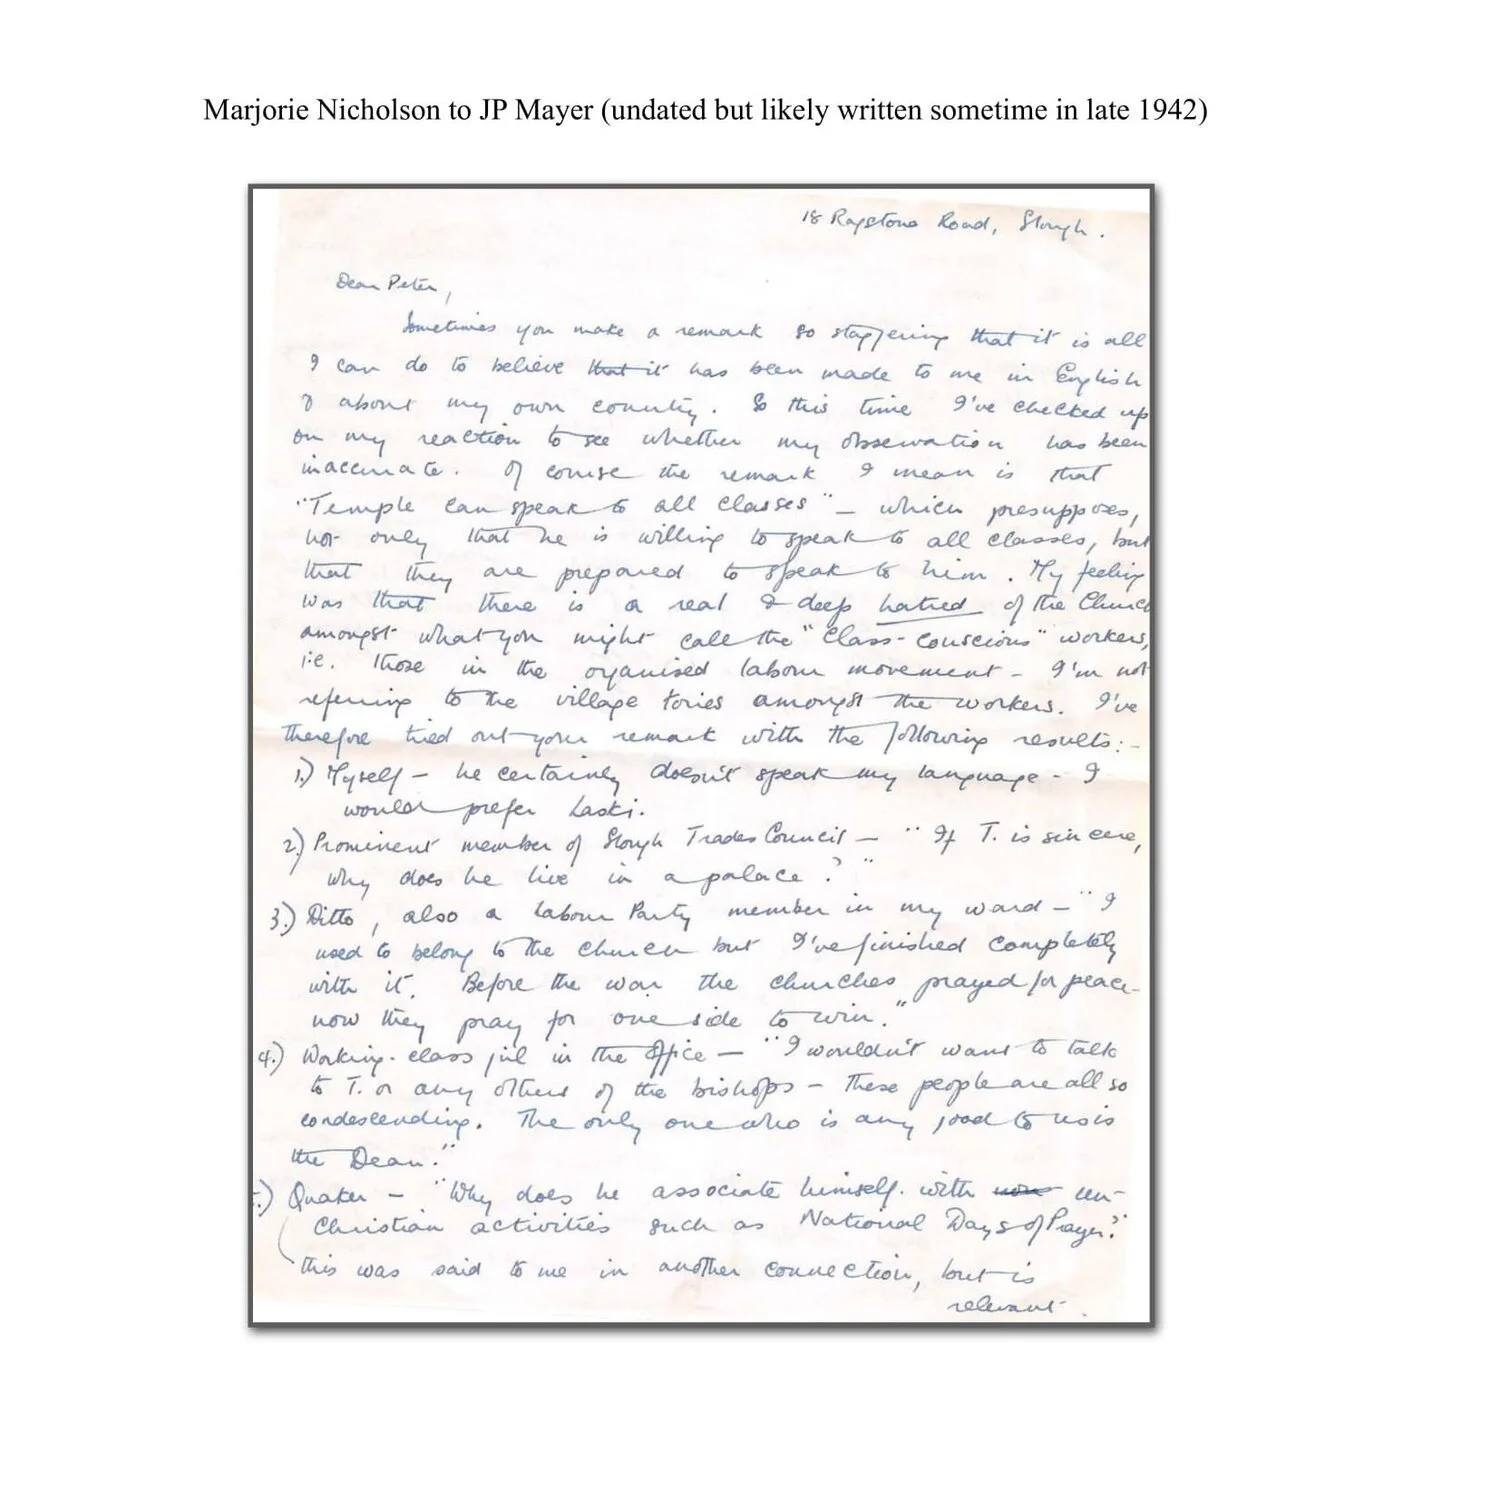 Marjorie Nicholson to JP Mayer (undated but likely written sometime in late 1942)
18 Ragstone Road, Slough.
Dear Peter,
Sometimes you make a remark so staggering that it is all
I can do to believe that it has been made to me in English
& about my own country. So this time I've checked up
on my reaction to see whether my observation has been
inaccurate. Of course the remark I mean is that
"Temple can speak to all classes" — which presupposes,
not only that he is willing to speak to all classes, but
that they are prepared to speak to him. My feeling
was that there is a real & deep hatred of the Church
amongst what you might call the "class-conscious" workers,
i.e. those in the organised labour movement - I'm not
referring to the village tories amongst the workers. I've
therefore tried out your remark with the following results:-
1.) Myself - he certainly doesn't speak my language - I
would prefer Laski.
2.) Prominent member of Slough Trades Council — "If T. is sincere,
why does he live in a palace?"
3.) Ditto, also a Labour Party member in my ward — "I
used to belong to the church but I've finished completely
with it. Before the war the churches prayed for peace -
now they pray for one side to win."
4.) Working-class girl in the office — "I wouldn't want to talk
to T. or any others of the bishops - these people are all so
condescending. The only one who is any good to us is
the Dean."
5.) Quaker - "Why does he associate himself with un-
Christian activities such as National Days of Prayer?"
this was said to me in another connection, but is
relevant.